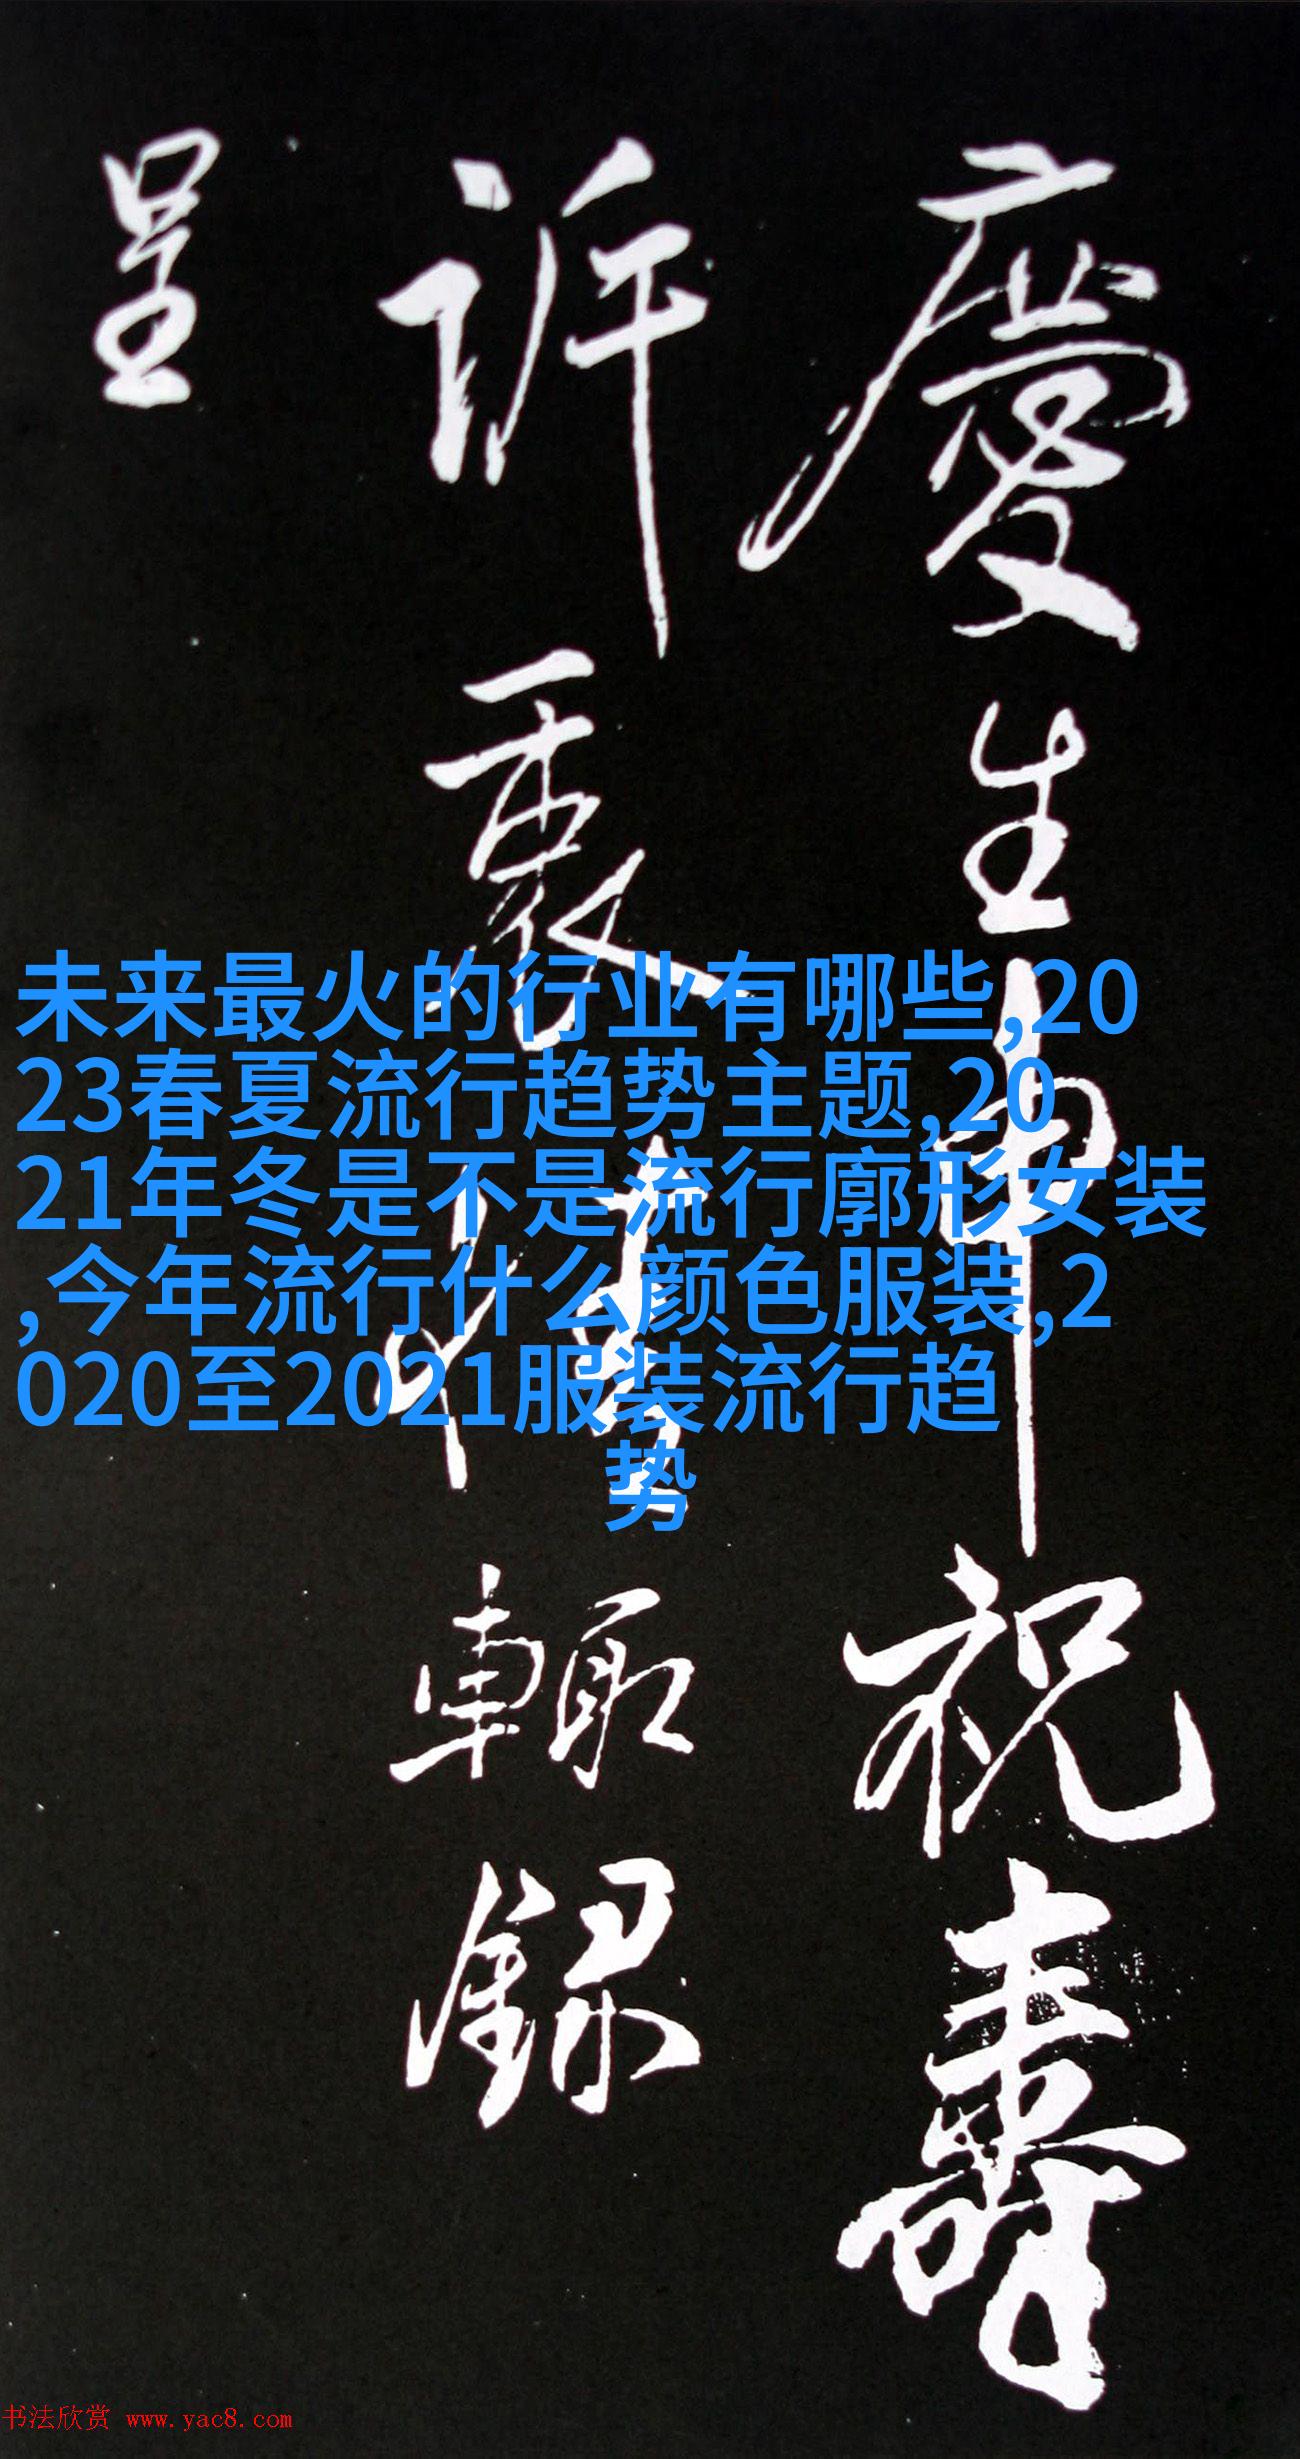 慶生申祝壽
訴衷情輒録
呈
未来最火的行业有哪些,20
23春夏流行趋势主题,20
21年冬是不是流行廓形女装
,今年流行什么颜色服装,2
020至2021服装流行趋
势
书法欣赏 www.yac8.com